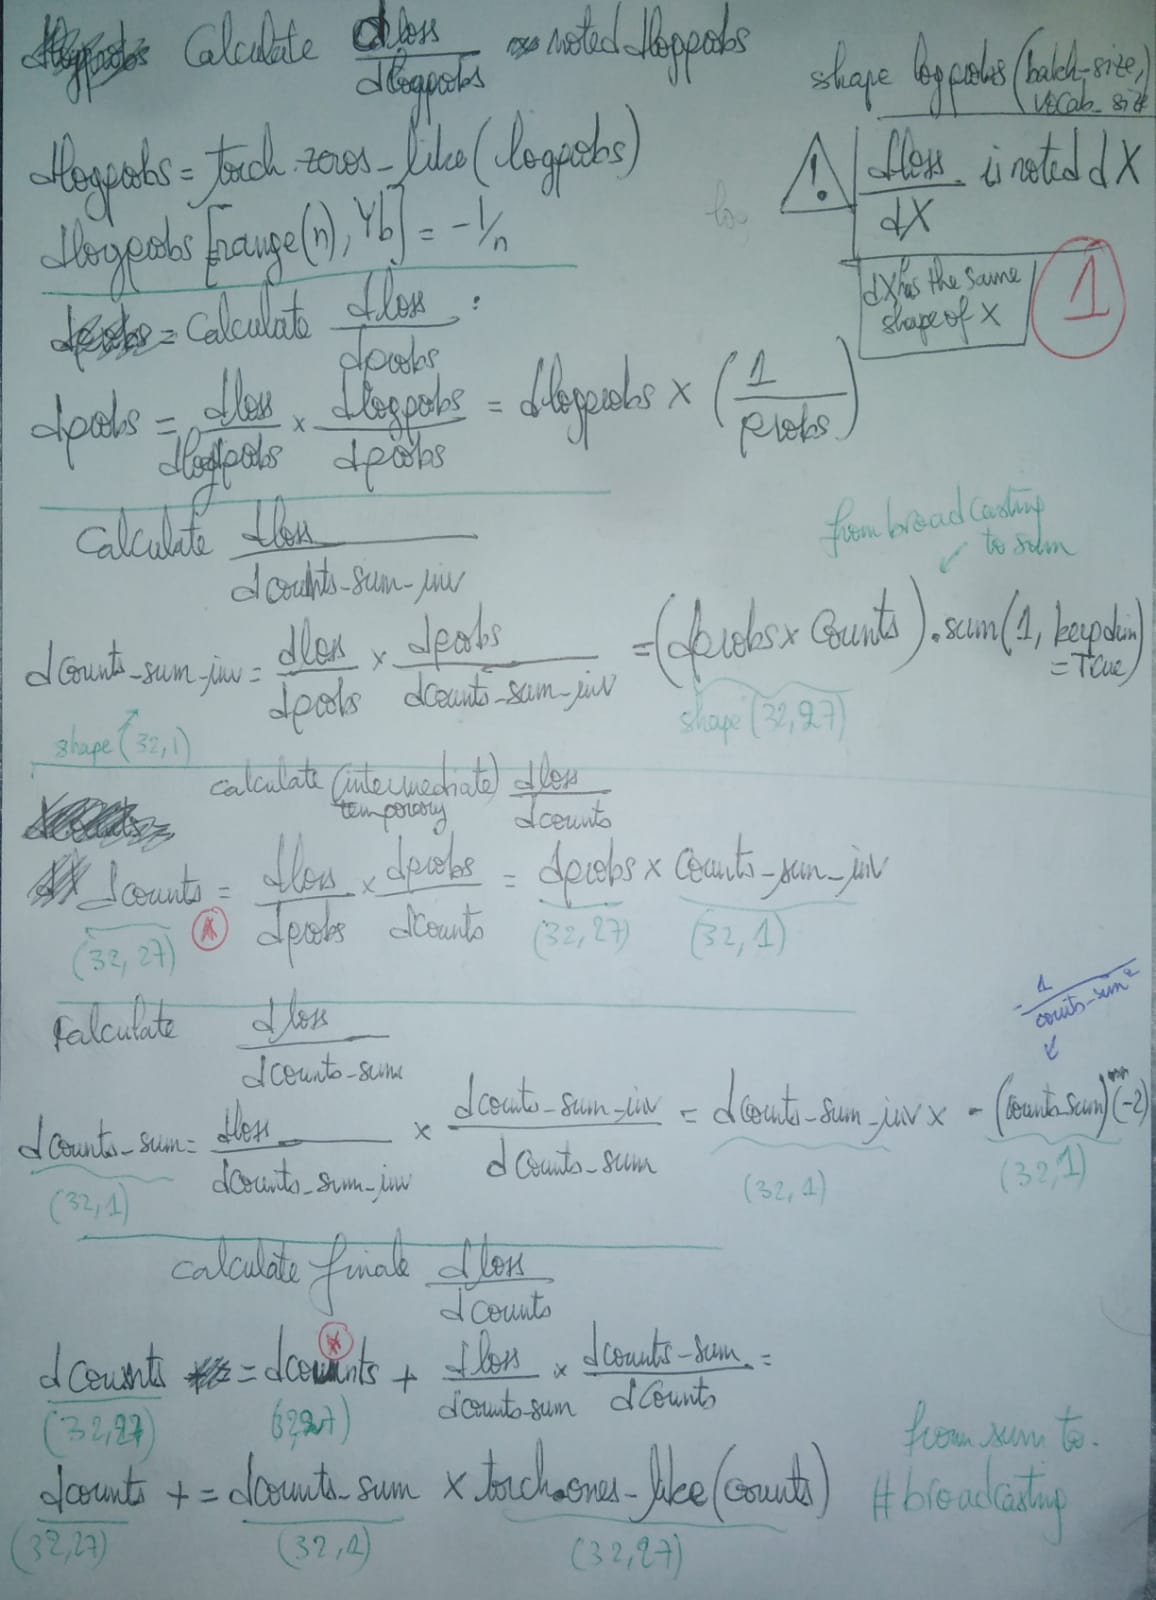 Calculate dloss/dlogprobs noted dlogprobs
shape logprobs (batch-size, vocab_size)
dlogprobs = torch.zeros_like(logprobs)
dlogprobs [range(n), Yb] = -1/n
! dloss/dX is noted dX
dX has the same shape of X
1
log
= Calculate dloss/dprobs :
dprobs = dloss/dlogprobs × dlogprobs/dprobs = dlogprobs × (1/probs)
Calculate dloss/dcounts_sum_inv
from broadcasting to sum
dcounts_sum_inv = dloss/dprobs × dprobs/dcounts_sum_inv = (dprobs × counts).sum(1, keepdim = True)
shape (32,1)
shape (32,27)
calculate (intermediate) temporary dloss/dcounts
dcounts = dloss/dprobs × dprobs/dcounts = dprobs × counts_sum_inv
(32,27) (32,27) (32,1)
Calculate dloss/dcounts_sum
-1/counts_sum²
dcounts_sum = dloss/dcounts_sum_inv × dcounts_sum_inv/dcounts_sum = dcounts_sum_inv × -(counts_sum)(-2)
(32,1) (32,1) (32,1)
calculate finale dloss/dcounts
dcounts = dcounts + dloss/dcounts_sum × dcounts_sum/dcounts =
(32,27) (32,27)
dcounts += dcounts_sum × torch.ones_like(counts)
(32,27) (32,1) (32,27)
from sum to.
# broadcasting